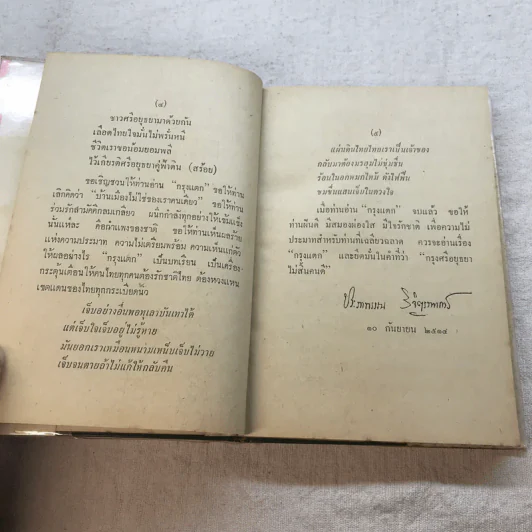 (๔)
ชาวศรีอยุธยามาด้วยกัน
เลือดไทยใจมั่นไม่พรั่นหนี
ชีวิตเราขอน้อมยอมพลี
ไว้เกียรติศรีอยุธยาคู่ฟ้าดิน (สร้อย)
ขอเชิญชวนให้ท่านอ่าน "กรุงแตก" ขอให้ท่าน
เลิกคิดว่า "บ้านเมืองไม่ใช่ของเราคนเดียว" ขอให้ท่าน
ร่วมรักสามัคคีกลมเกลียว ผนึกกำลังทุกอย่างให้เข้มแข็ง
นั่นแหละ คือกำแพงของชาติ ขอให้ท่านเห็นผลร้าย
แห่งความประมาท ความไม่เตรียมพร้อม ความเห็นแก่ตัว
ให้ผลอย่างไร "กรุงแตก" เป็นบทเรียน เป็นเครื่อง
กระตุ้นเตือนให้คนไทยทุกคนต้องรักชาติไทย ต้องหวงแหน
เขตแดนของไทยทุกกระเบียดนิ้ว
เจ็บอย่างอื่นพอทุเลาบันเทาได้
แต่เจ็บใจเจ็บอยู่ไม่รู้หาย
มันยอกเราเหมือนหนามเหน็บเจ็บไม่วาย
เจ็บจนตายถ้าไม่แก้ให้กลับคืน
(๕)
แผ่นดินไทยไทยเราเป็นเจ้าของ
กลับมาต้องมรสุมไม่ชุ่มชื่น
ร้อนในอกหมกไหม้ ดังไฟฟืน
ขมขื่นแสนเจ็บในดวงใจ
เมื่อท่านอ่าน "กรุงแตก" จบแล้ว ขอให้
ท่านฝันดี มีสมองผ่องใส มีใจรักชาติ เพื่อความไม่
ประมาทสำหรับท่านที่เฉลียวฉลาด ควรจะอ่านเรื่อง
"กรุงแตก" และยึดมั่นในคำที่ว่า "กรุงศรีอยุธยา
ไม่สิ้นคนดี"
๑๐ กันยายน ๒๕๑๔